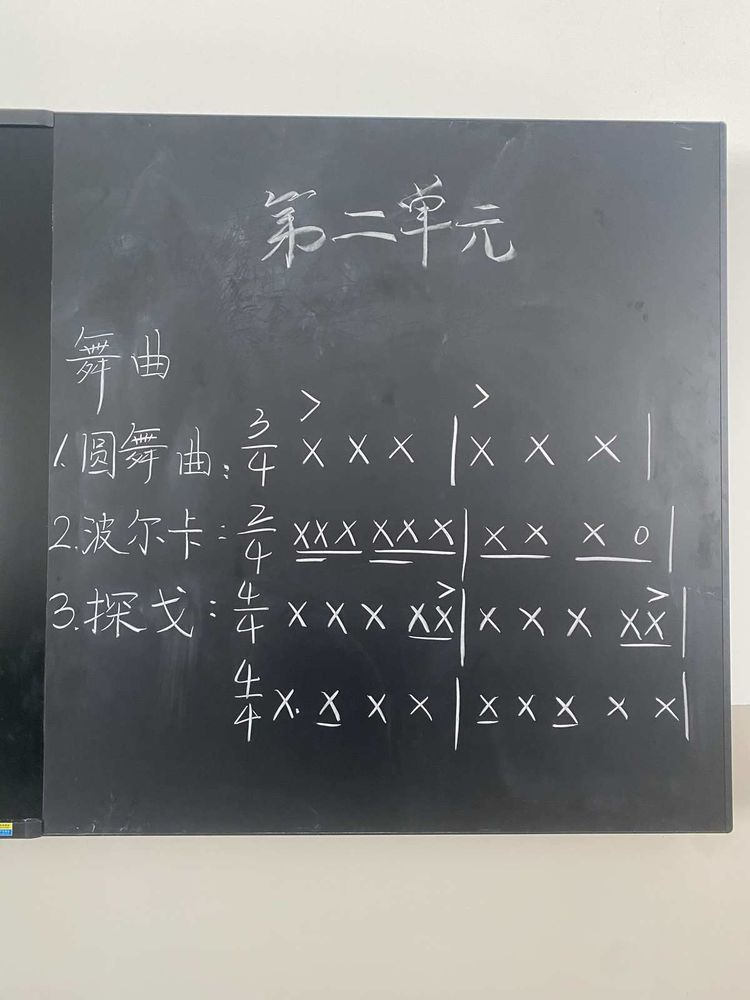 第二单元
舞曲
1.圆舞曲: 3/4 X X X | X X X |
2.波尔卡: 2/4 XXX XXX | X X X 0 |
3.探戈: 4/4 X X X XX | X X X XX |
4/4 X. X X X | X X X X X |